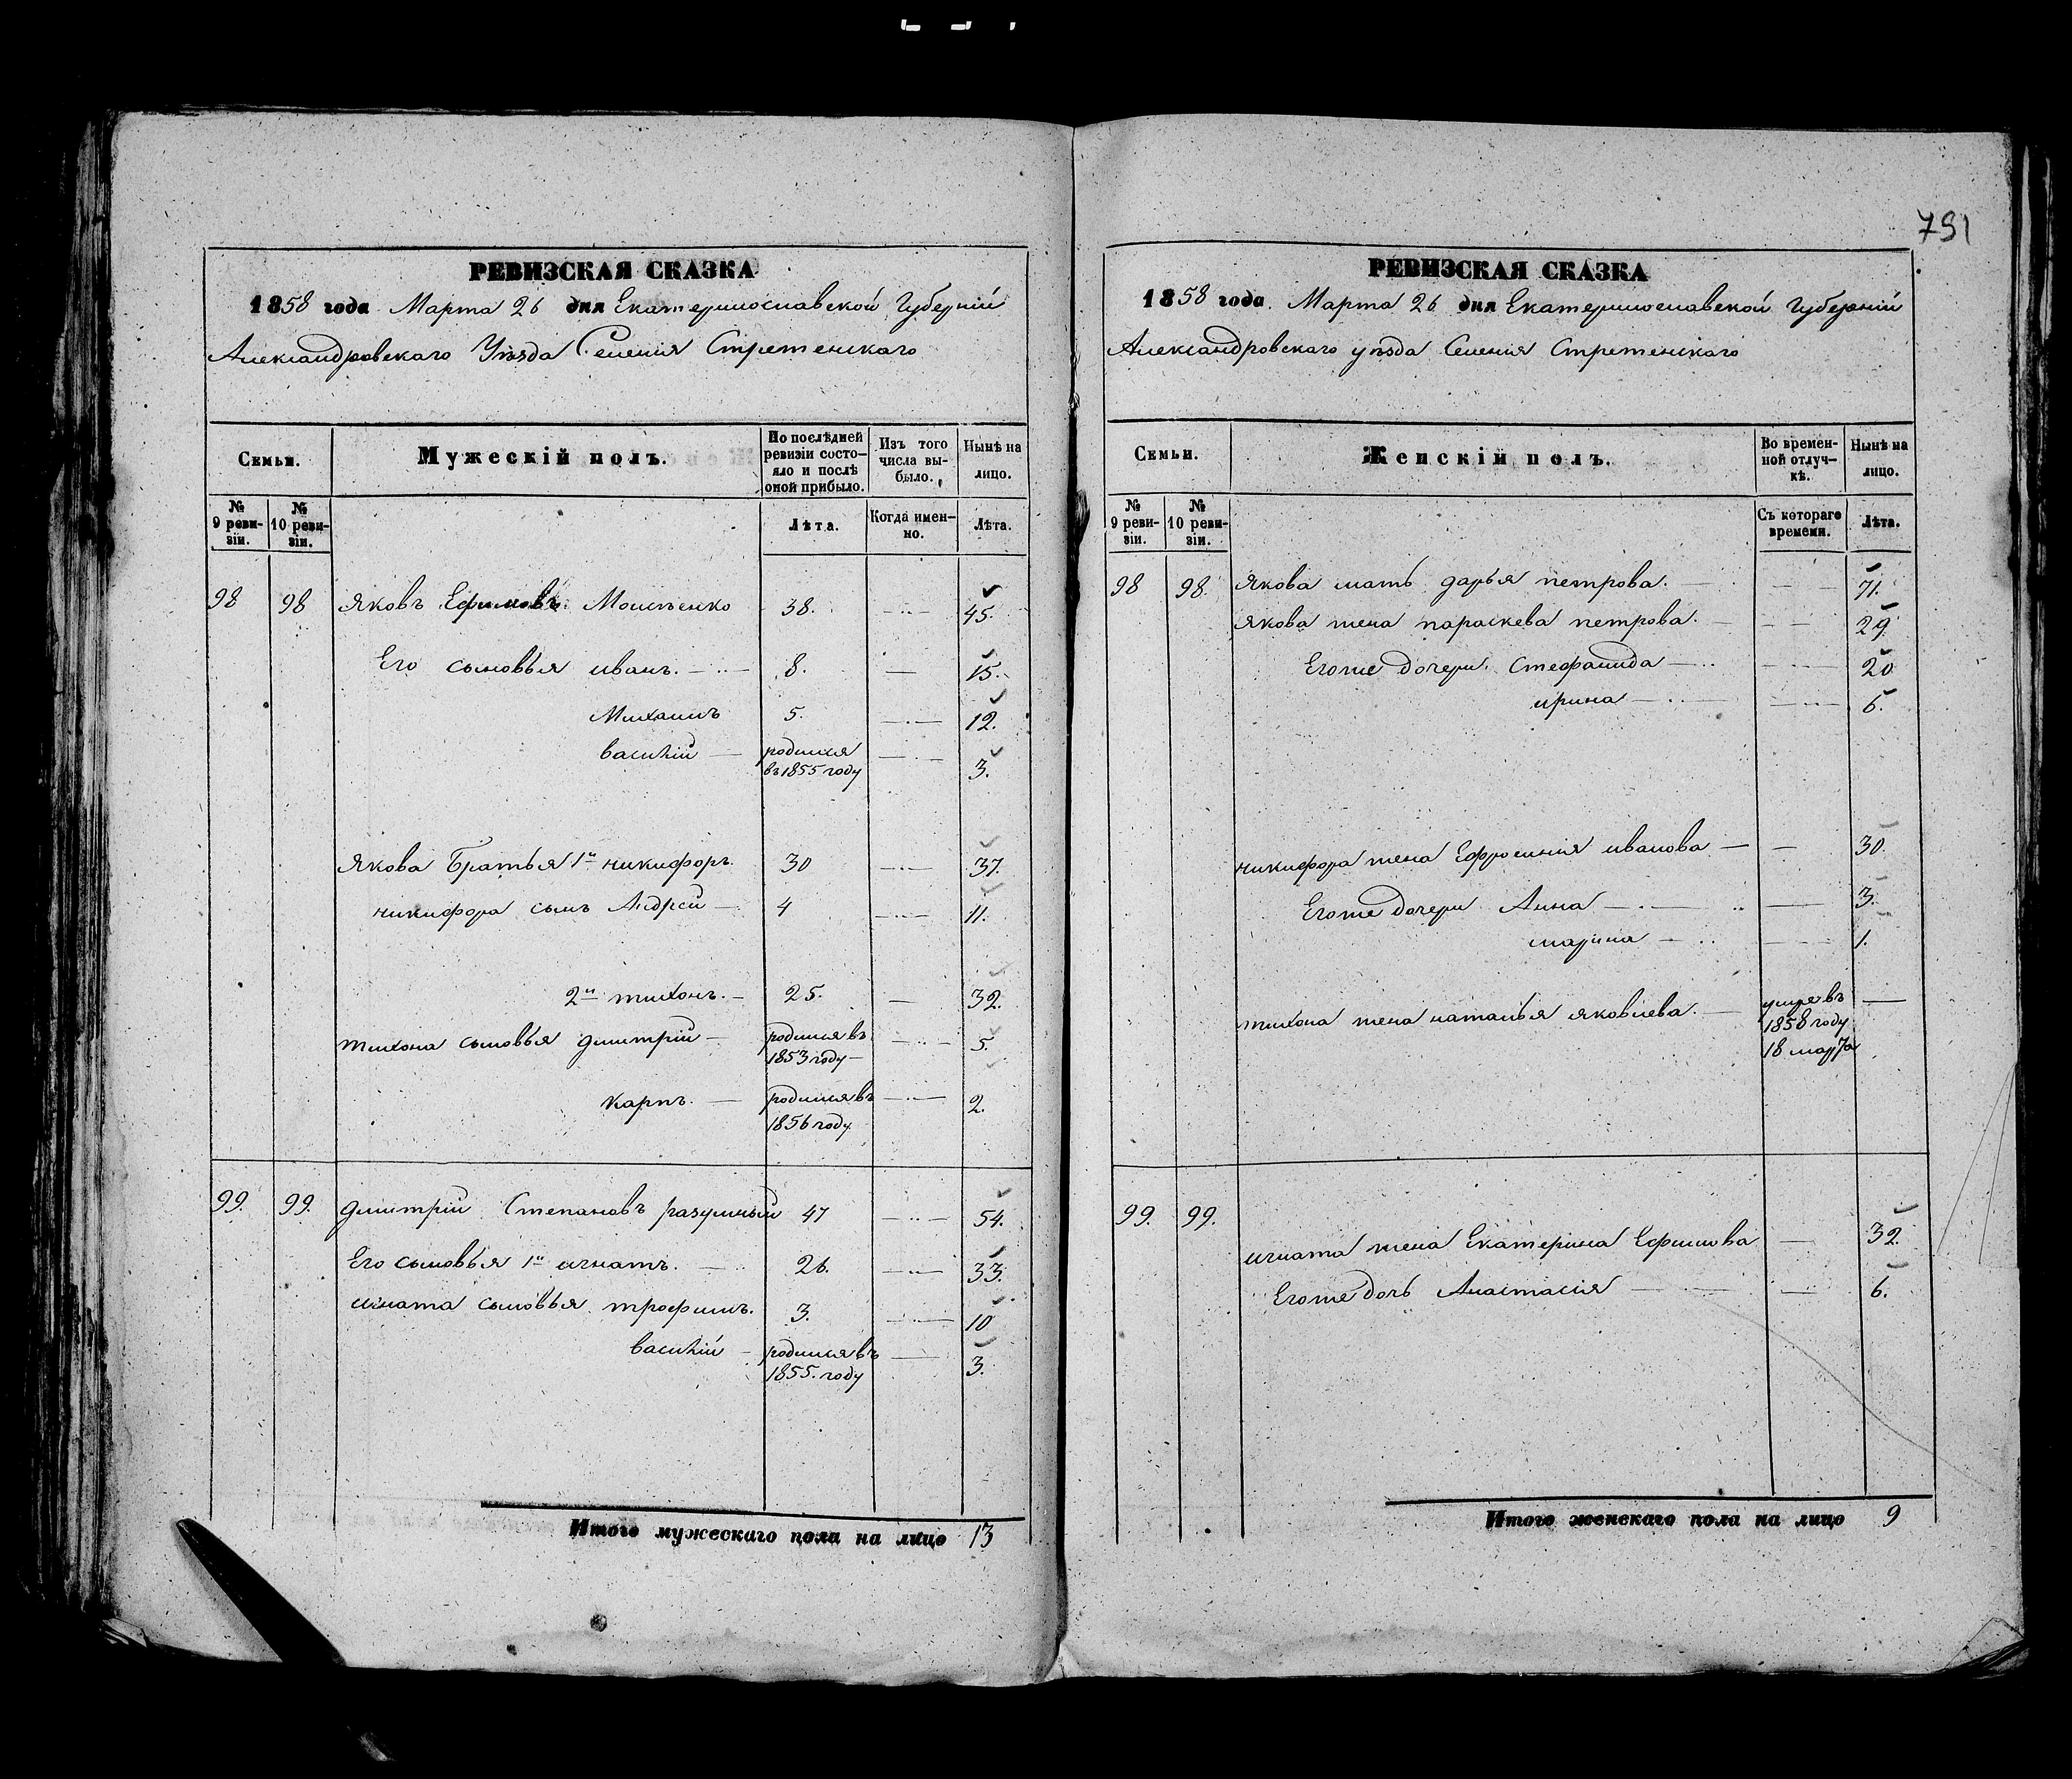 791
РЕВИЗСКАЯ СКАЗКА
1858 года Марта 26 дня Екатеринославской Губерніи
Александровскаго Уѣзда Селенія Стретенскаго
Семьи.
Мужескій полъ.
По послѣдней ревизіи состояло и послѣ оной прибыло.
Изъ того числа выбыло.
Нынѣ на лицо.
№ 9 ревизіи.
№ 10 ревизіи.
Лѣта.
Когда именно.
Лѣта.
98 98 Яковъ Ефимовъ 38. 45.
Его сыновья иванъ. 8. 15.
Михаилъ 5. 12.
василій родился въ 1855 году 3.
Якова Братья 1й никифоръ. 30 37.
никифора сынъ Андрей 4 11.
2й тихонъ. 25. 32.
тихона сыновья дмитрій родился въ 1853 году 5.
карпъ. родился въ 1856 году 2.
99. 99. дмитрій Степановъ разумный 47 54.
Его сыновья 1й игнатъ. 26. 33.
игната сыновья трофимъ. 3. 10
василій родился въ 1855. году 3.
Итого мужескаго пола на лицо 13
РЕВИЗСКАЯ СКАЗКА
1858 года. Марта 26 дня Екатеринославской Губерніи
Александровскаго уѣзда Селенія Стретенскаго
Семьи.
Женскій полъ.
Во временной отлучкѣ.
Нынѣ на лицо.
№ 9 ревизіи.
№ 10 ревизіи.
Съ котораго времени.
Лѣта.
98 98. Якова мать дарья петрова. 71.
Якова жена параскева петрова. 29.
Егоже дочери. Стефанида 20
ирина 6.
никифора жена Ефросинія иванова 30.
Егоже дочери Анна 3.
марина 1.
тихона жена наталья яковлева. умре въ 1858 году 18 марта
99. 99. игната жена Екатерина Ефимова 32.
Егоже дочь Анастасія 6.
Итого женскаго пола на лицо 9